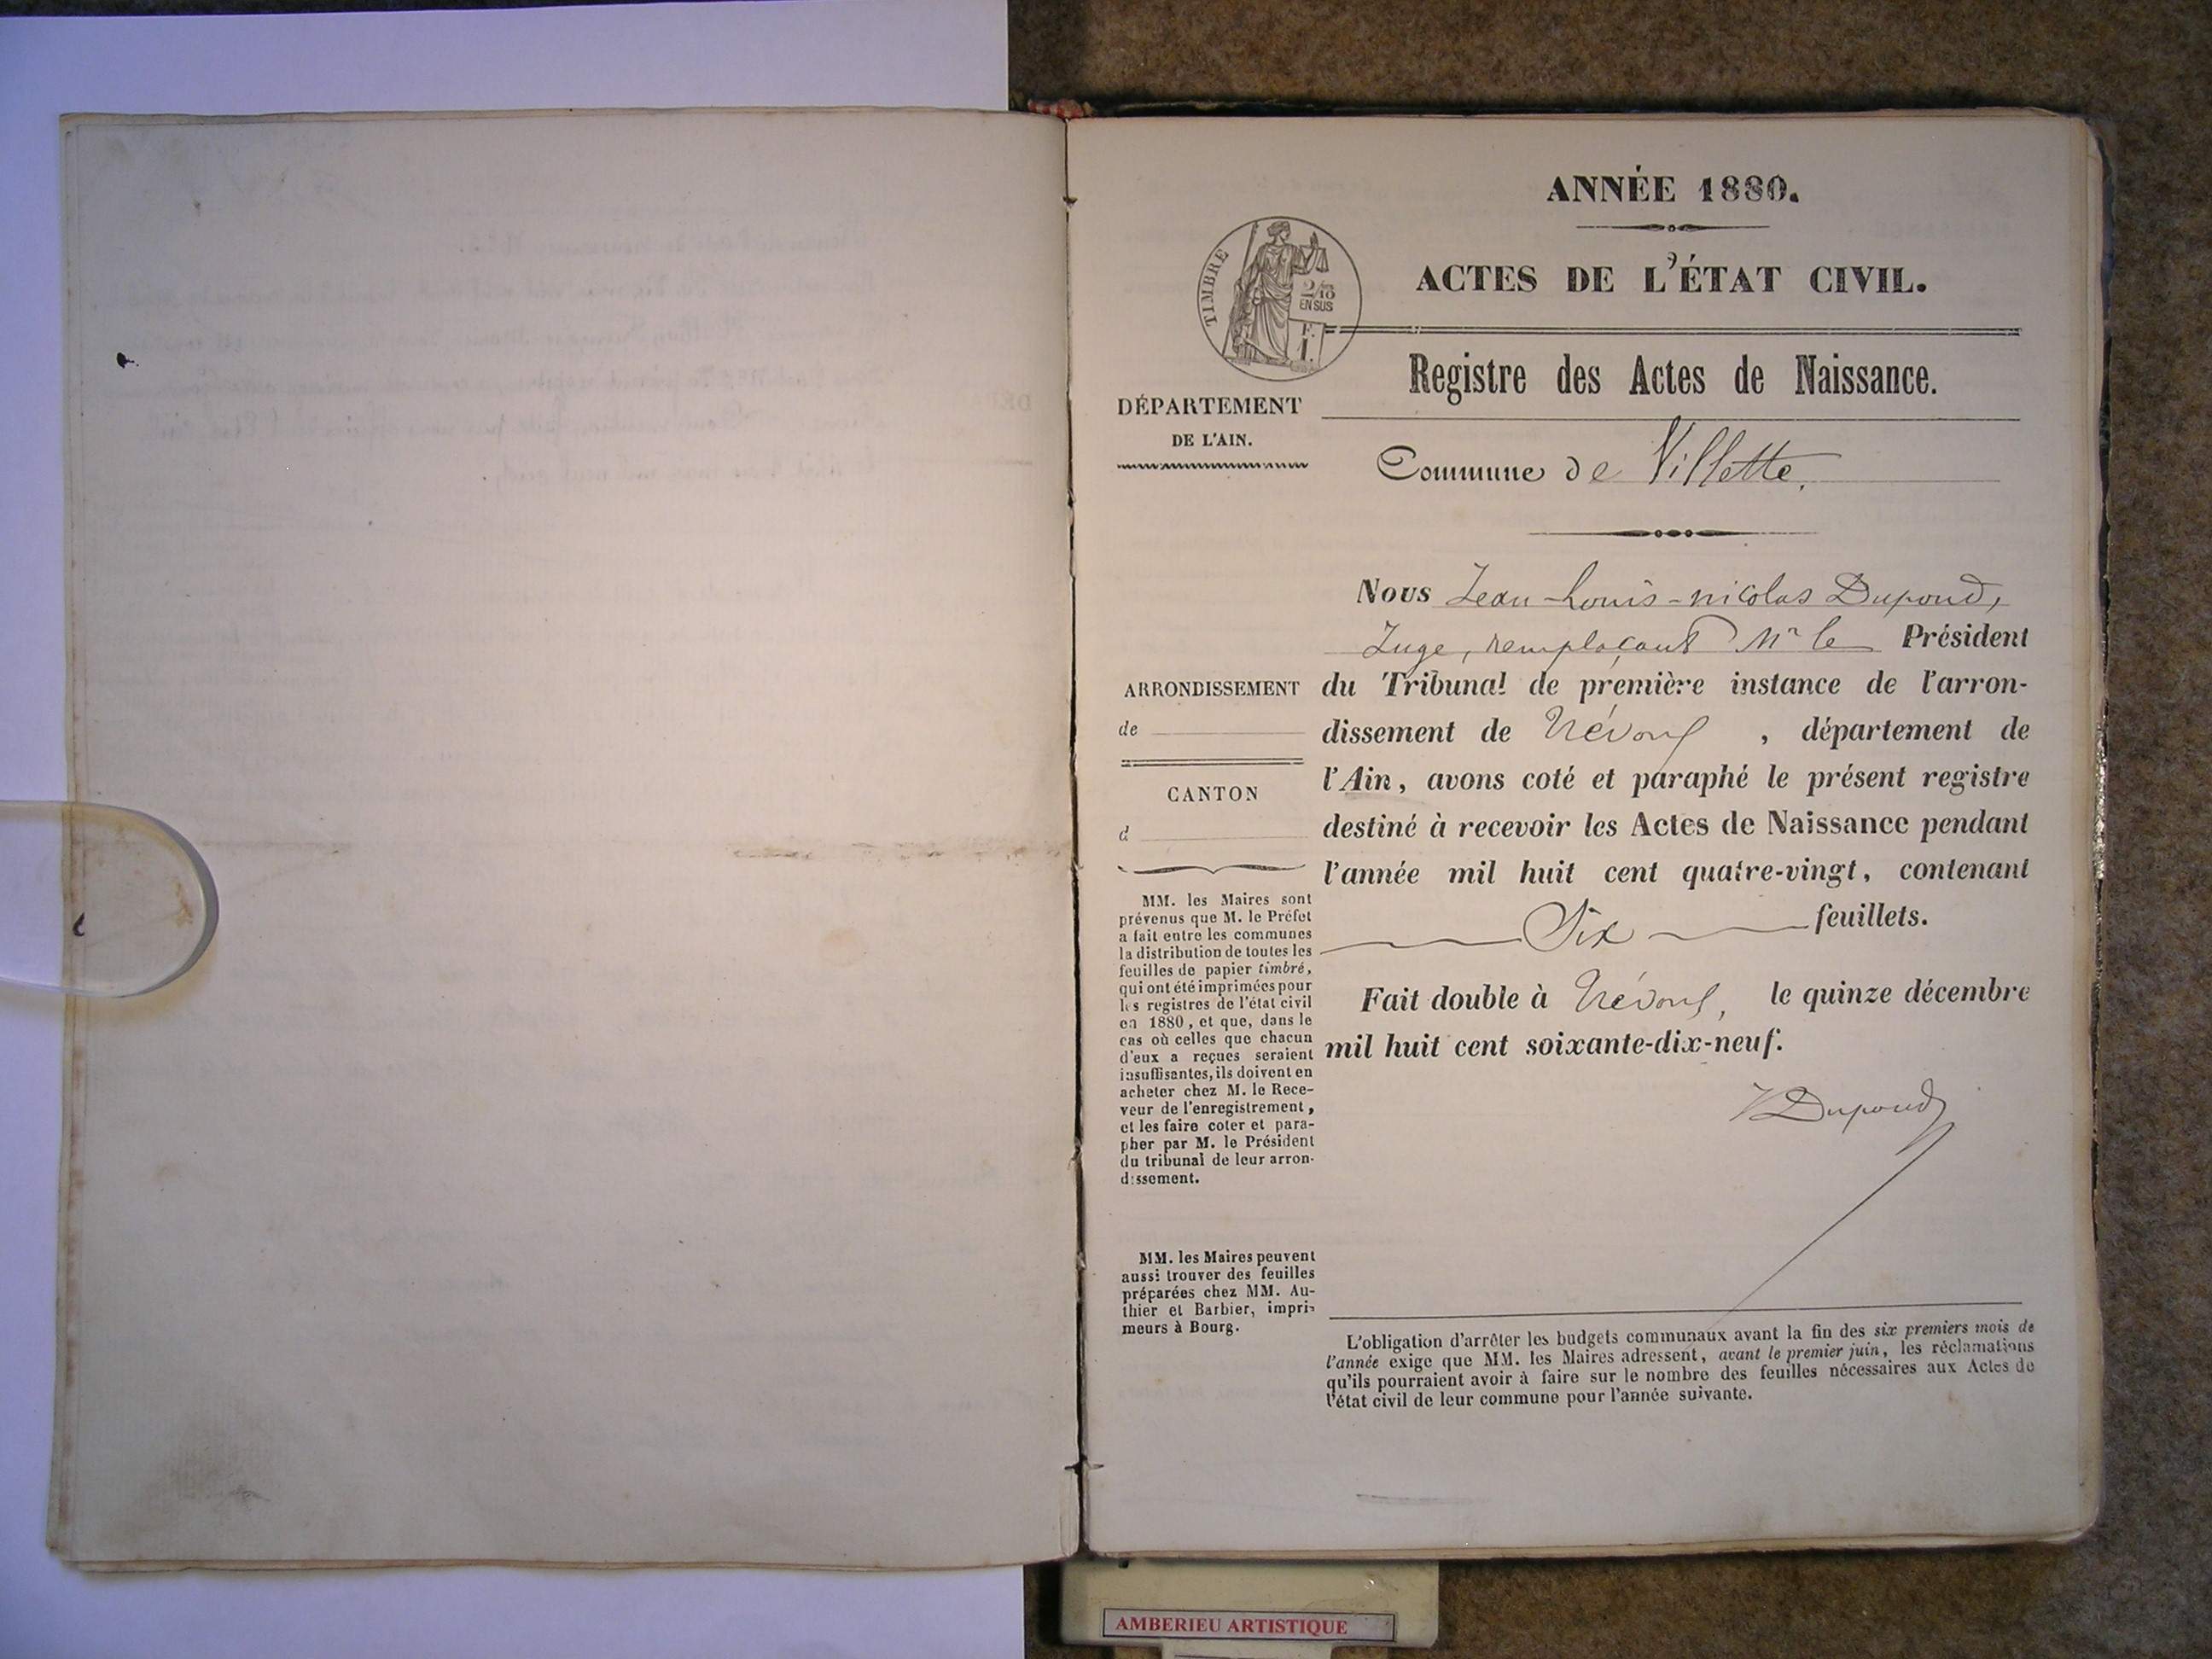 ANNÉE 1880.
ACTES DE L'ÉTAT CIVIL.
TIMBRE
2/10
EN SUS
F.
1.
Registre des Actes de Naissance.
DÉPARTEMENT
DE L'AIN.
Commune de Villette.
Nous Jean-Louis-nicolas Dupond,
Juge, remplaçant Mr le Président
du Tribunal de première instance de l'arron-
dissement de Trévoux, département de
l'Ain, avons coté et paraphé le présent registre
destiné à recevoir les Actes de Naissance pendant
l'année mil huit cent quatre-vingt, contenant
Six feuillets.
Fait double à Trévoux, le quinze décembre
mil huit cent soixante-dix-neuf.
Dupond
ARRONDISSEMENT
de
CANTON
d
MM. les Maires sont
prévenus que M. le Préfet
a fait entre les communes
la distribution de toutes les
feuilles de papier timbré,
qui ont été imprimées pour
les registres de l'état civil
en 1880, et que, dans le
cas où celles que chacun
d'eux a reçues seraient
insuffisantes, ils doivent en
acheter chez M. le Rece-
veur de l'enregistrement,
et les faire coter et para-
pher par M. le Président
du tribunal de leur arron-
dissement.
MM. les Maires peuvent
aussi trouver des feuilles
préparées chez MM. Au-
thier et Barbier, impri-
meurs à Bourg.
L'obligation d'arrêter les budgets communaux avant la fin des six premiers mois de
l'année exige que MM. les Maires adressent, avant le premier juin, les réclamations
qu'ils pourraient avoir à faire sur le nombre des feuilles nécessaires aux Actes de
l'état civil de leur commune pour l'année suivante.
AMBERIEU ARTISTIQUE